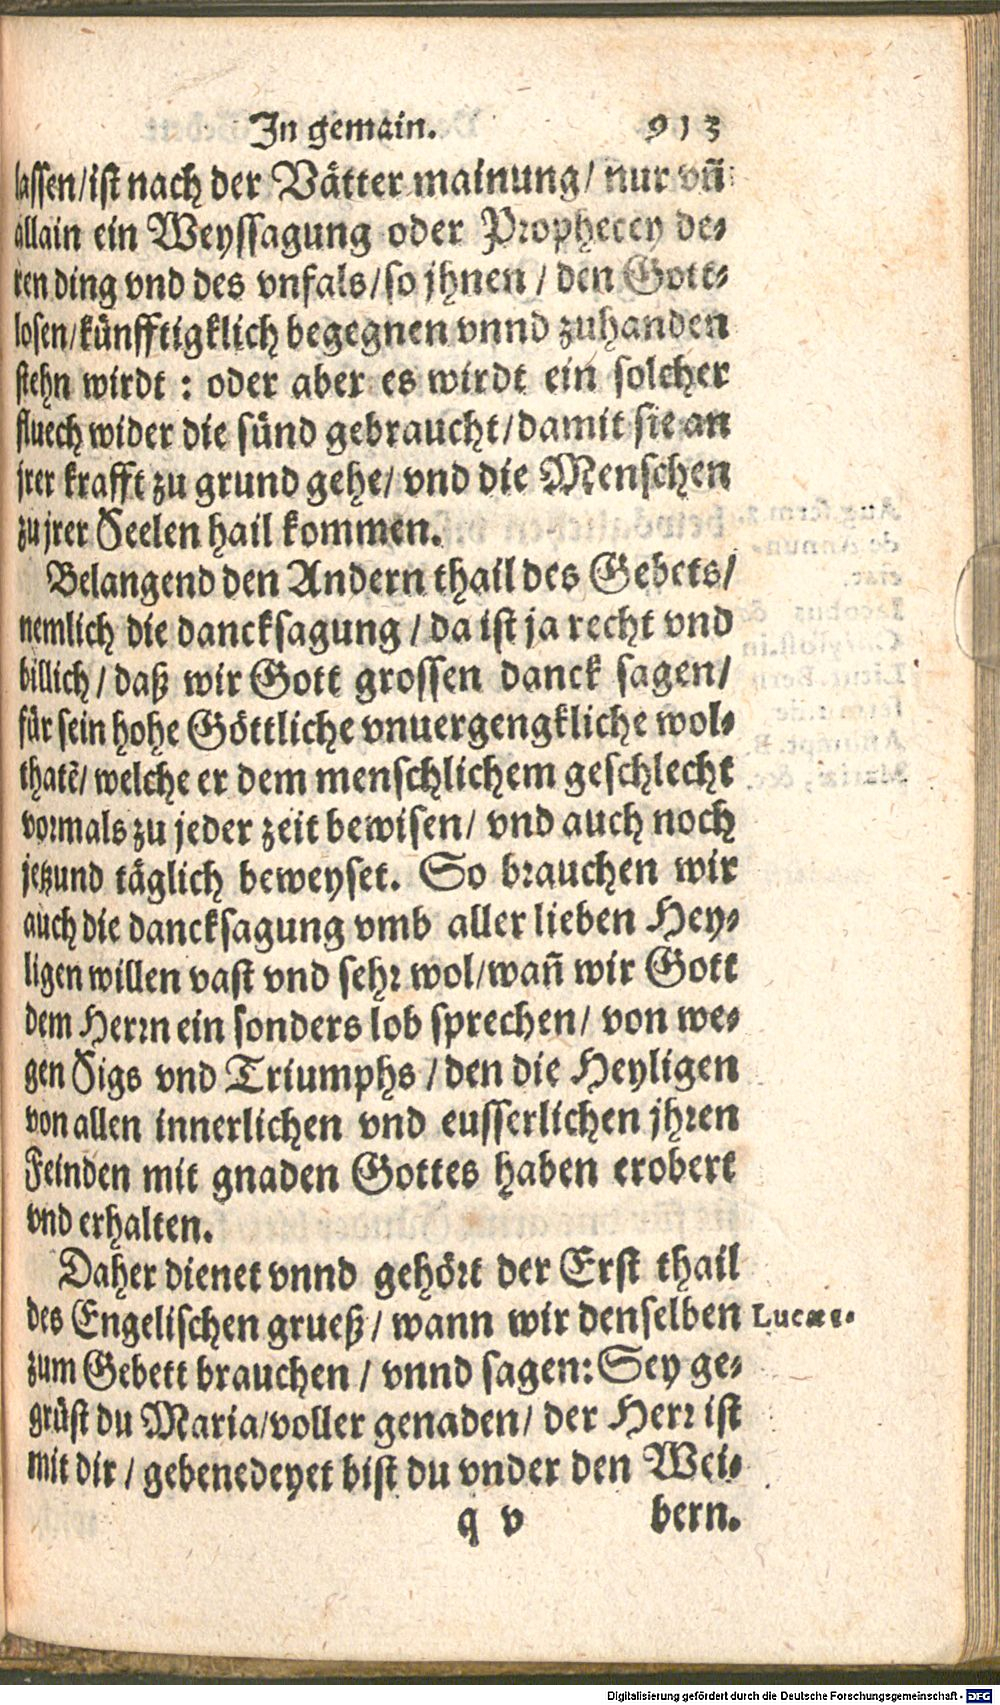 In gemain. 913
lassen/ist nach der Vätter mainung/ nur vñ
allain ein Weyssagung oder Prophecey de-
ren ding vnd des vnfals/so jhnen / den Gott-
losen/künfftigklich begegnen vnnd zuhanden
stehn wirdt : oder aber es wirdt ein solcher
fluech wider die sünd gebraucht/damit sie an
jrer krafft zu grund gehe/ vnd die Menschen
zu jrer Seelen hail kommen.
Belangend den Andern thail des Gebets/
nemlich die dancksagung / da ist ja recht vnd
billich / daß wir Gott grossen danck sagen/
für sein hohe Göttliche vnuergengkliche wol-
thatē/ welche er dem menschlichem geschlecht
vormals zu jeder zeit bewisen/ vnd auch noch
jetzund täglich beweyset. So brauchen wir
auch die dancksagung vmb aller lieben Hey-
ligen willen vast vnd sehr wol/wañ wir Gott
dem Herrn ein sonders lob sprechen/ von we-
gen Sigs vnd Triumphs / den die Heyligen
von allen innerlichen vnd eusserlichen jhren
Feinden mit gnaden Gottes haben erobert
vnd erhalten.
Daher dienet vnnd gehört der Erst thail
des Engelischen grueß / wann wir denselben Lucæ 1.
zum Gebett brauchen / vnnd sagen: Sey ge-
grüst du Maria/voller genaden/ der Herr ist
mit dir / gebenedeyet bist du vnder den Wei-
q v bern.
Digitalisierung gefördert durch die Deutsche Forschungsgemeinschaft - DFG